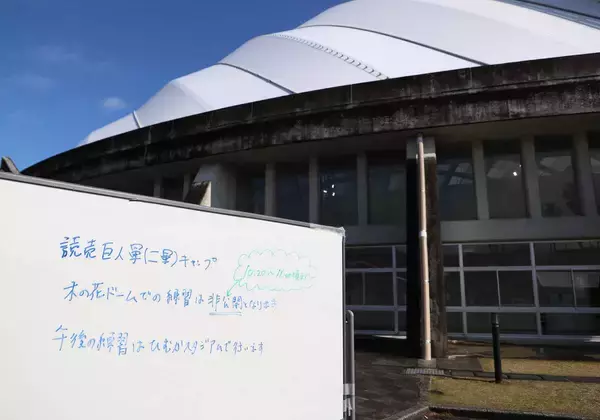 読売巨人軍(二軍)キャンプ
木の花ドームでの練習は非公開となります
午後の練習はひむかスタジアムで行います